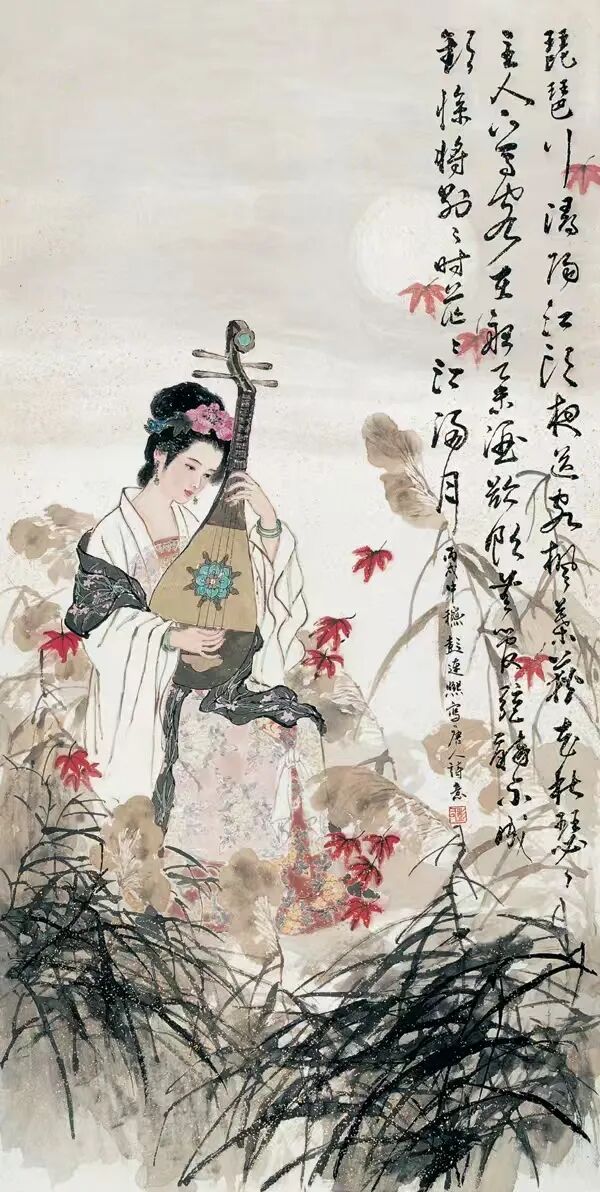 琵琶行 潯陽江頭夜送客楓葉荻花秋瑟〻
主人下馬客在船舉酒欲飲無管絃醉不成
歡慘將別〻時茫〻江浸月
丙戌仲穐彭連熙寫唐人詩意